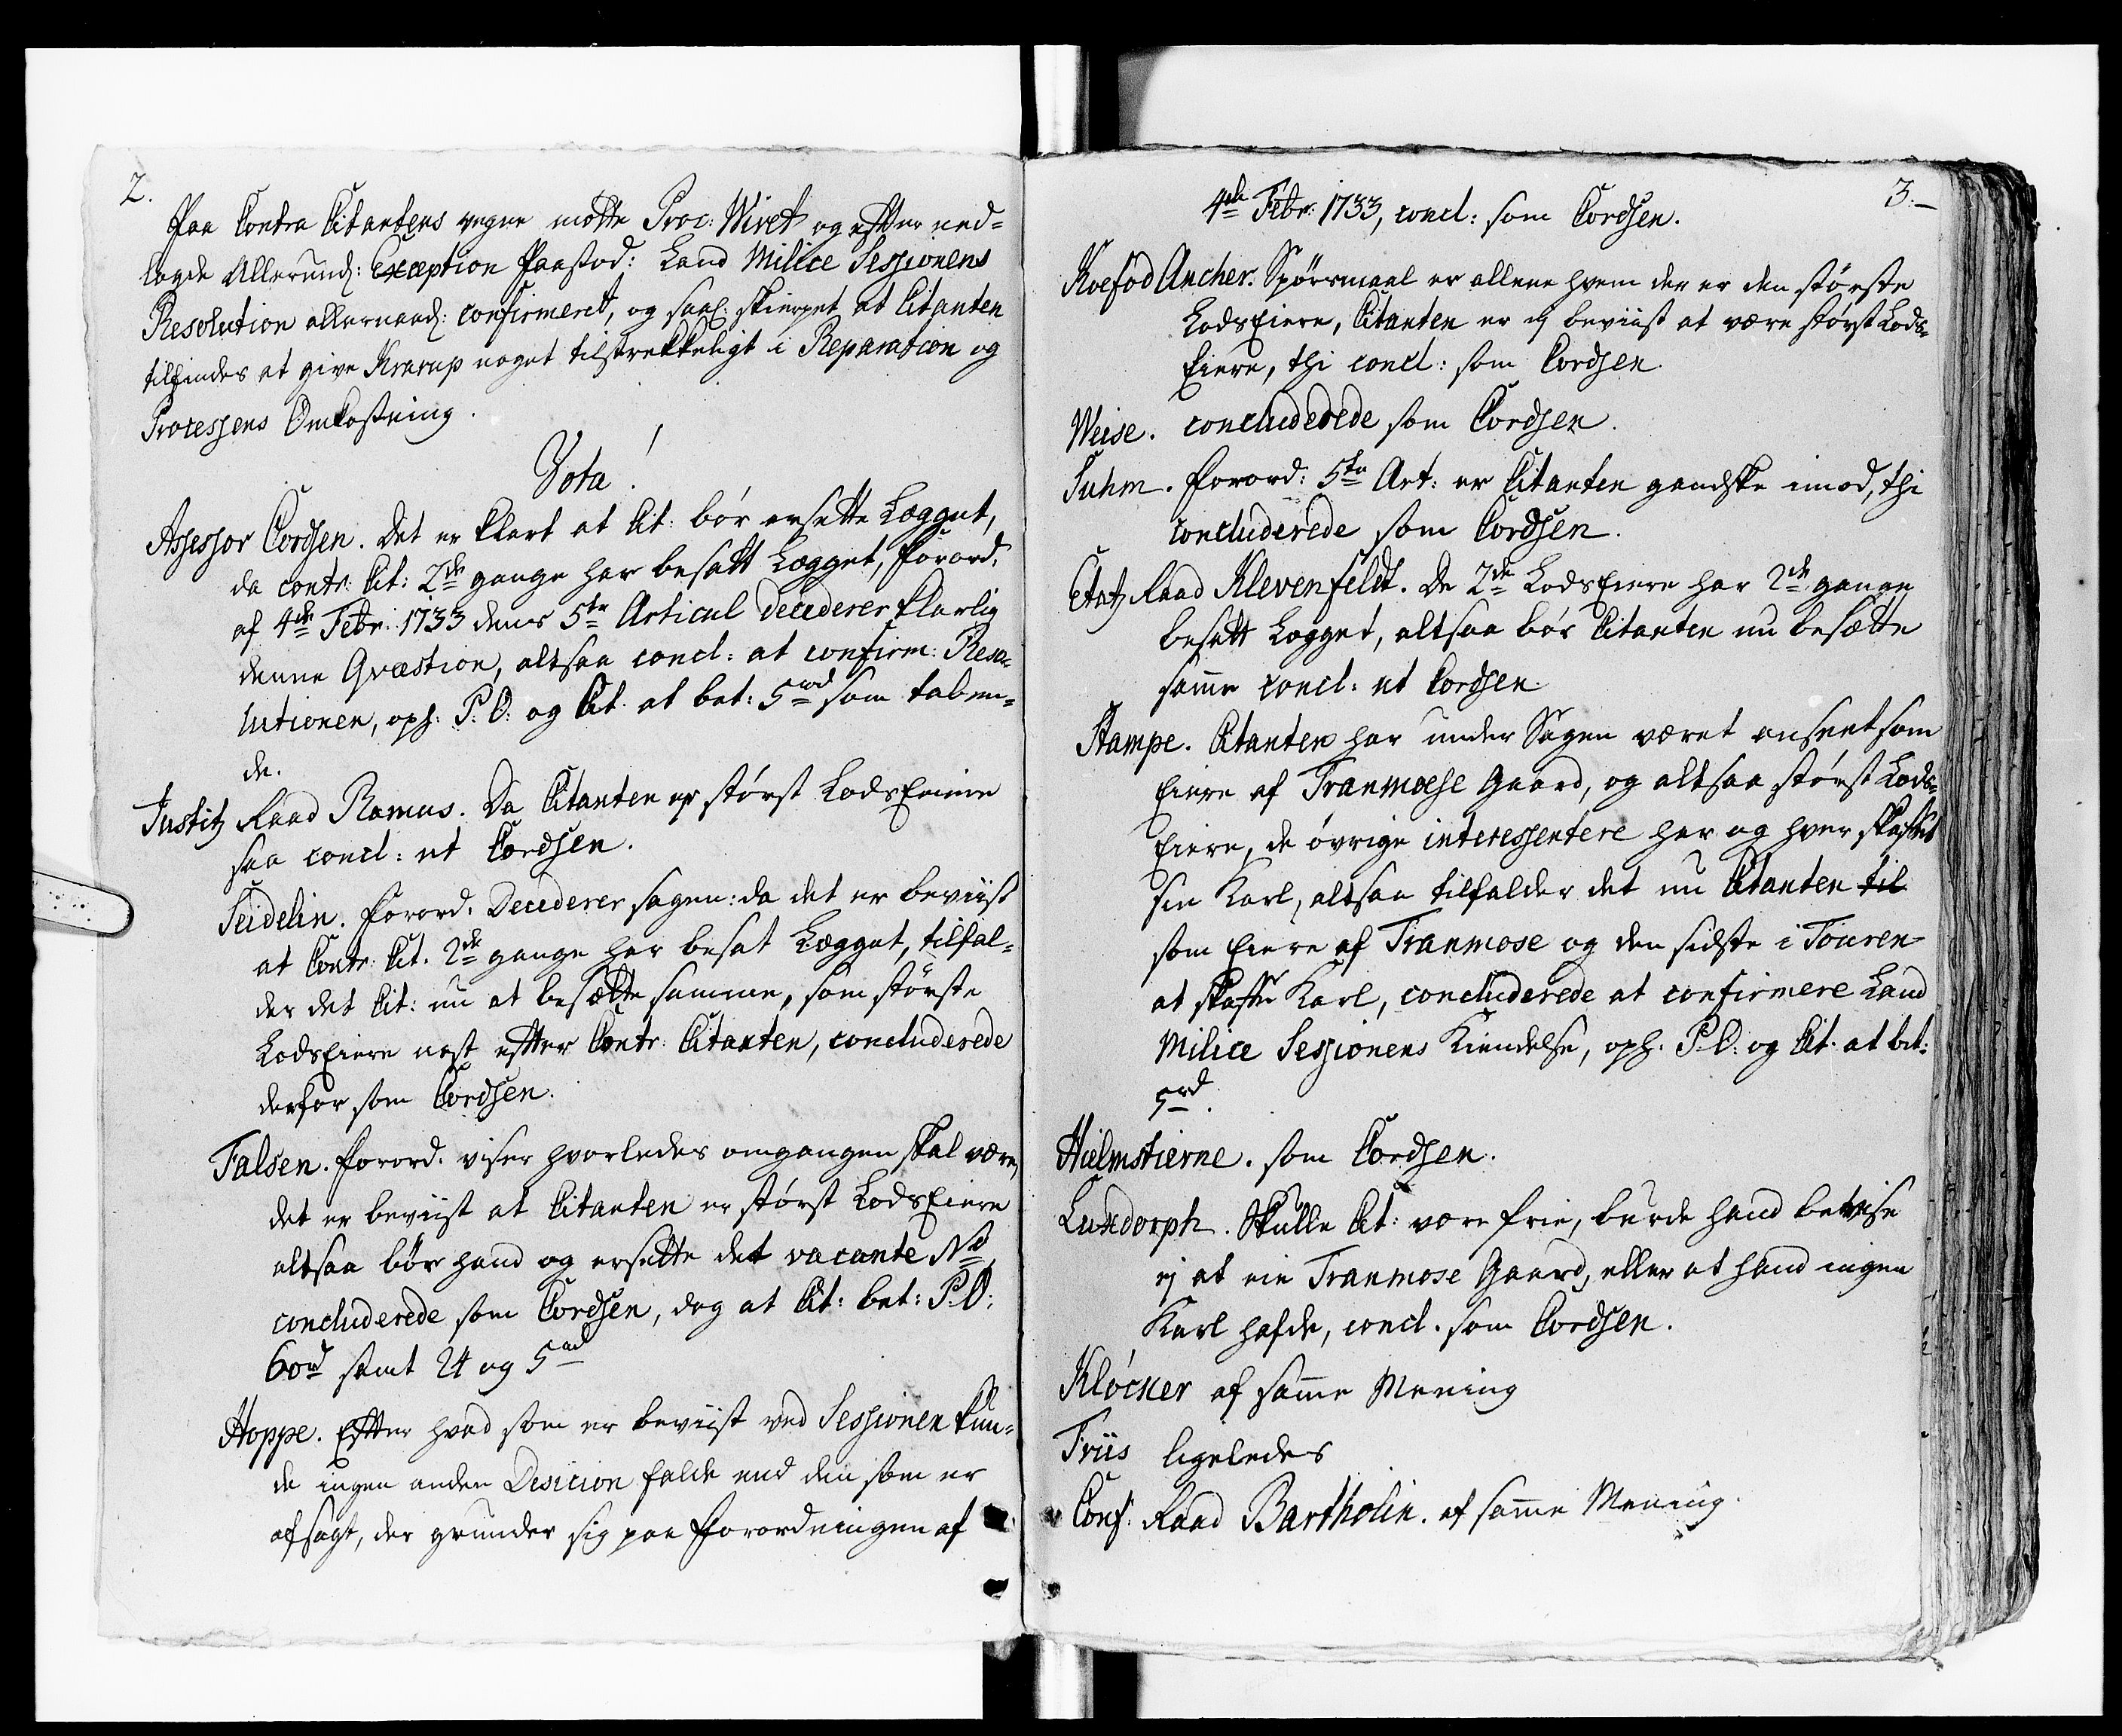 2.
Paa Contra Citantens vegne mötte Proc: Wiret og efter ned-
lagde Allerund: Exception Paastod: Land Milice Sessionens
Resolution allernaad: confirmeret, og saal: skierpet at Citanten
tilfindes at give Krarup noget tilstrekkeligt i Reparation og
Processens Omkostning.
Vota!
Assessor Cordsen. Det er klart at Cit: bör ersette Lægget,
da contr: Cit: 2de gange har besatt Lægget, Forord.
af 4de Febr: 1733 dens 5te Articul Decederer klarlig
denne Qvæstion, altsaa concl: at confirm: Reso-
lutionen, oph: P: O: og Cit. at bet: 5rd som taben-
de.
Justitz Raad Ramus. Da Citanten er störst LodsEiere
saa concl: ut Cordsen.
Seidelin. Forord. Decederer sagen: da det er beviist
at Contr: Cit. 2de gange har besat Lægget, tilfal-
der det Cit: nu at besætte samme, som störste
LodsEiere nest efter Contr: Citanten, concluderede
derfor som Cordsen.
Falsen. Forord. viser hvorledes omgangen skal være,
det er beviist at Citanten er störst LodsEiere
altsaa bör hand og ersette det vacante No
concluderede som Cordsen, dog at Cit: bet: P: O:
60rd samt 24 og 5rd
Hoppe. Efter hvad som er beviist ved Sessionen kun-
de ingen anden Desicion falde end den som er
afsagt, der grunder sig paa Forordningen af
3.-
4de Febr: 1733, concl: som Cordsen.
Koefod Ancher. Spörsmaal er allene hvem der er den störste
LodsEiere, Citanten er ej beviist at være störst Lods-
Eiere, thi concl: som Cordsen.
Weise. concluderede som Cordsen.
Suhm. Forord: 5te Art: er Citanten gandske imod, thi
concluderede som Cordsen.
Etatz Raad Klevenfeldt. De 2de LodsEiere har 2de gange
besatt Lægget, altsaa bör Citanten nu besætte
samme concl: ut Cordsen.
Stampe. Citanten har under Sagen været anseet som
Eiere af Tranmose Gaard, og altsaa störst Lods-
Eiere, de övrige interessentere har og hver skaffet
sin Karl, altsaa tilfalder det nu Citanten til
som Eiere af Tranmose og den sidste i Touren
at skaffe Karl, concluderede at confirmere Land
Milice Sessionens Kiendelse, oph. P: O: og Cit. at bet:
5rd.
Hielmstierne. som Cordsen.
Luxdorph. Skulle Cit: være frie, burde hand bevise
ej at eie Tranmose Gaard, eller at hand ingen
Karl hafde, concl. som Cordsen.
Klöcker af samme Mening
Friis ligeledes
Conf: Raad Bartholin. af samme Mening.